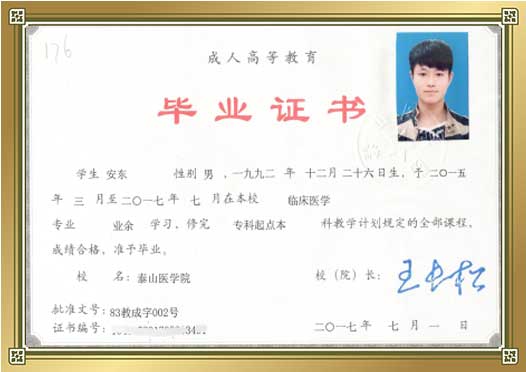 176
成人高等教育
毕业证书
学生 安东 性别 男 ，一九九二 年 十二月 二十六日生，于 二〇一五
年 三 月至 二〇一七年 七 月在本校 临床医学
专业 业余 学习，修完 专科起点本 科教学计划规定的全部课程，
成绩合格，准予毕业。
校 名：泰山医学院 校（院）长：
批准文号：83教成字002号
证书编号：
二〇一七年 七 月 一 日